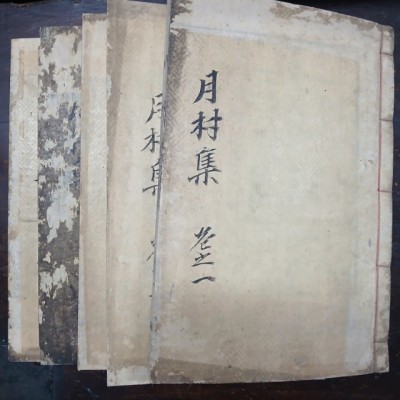 月村集 卷之一
月村集